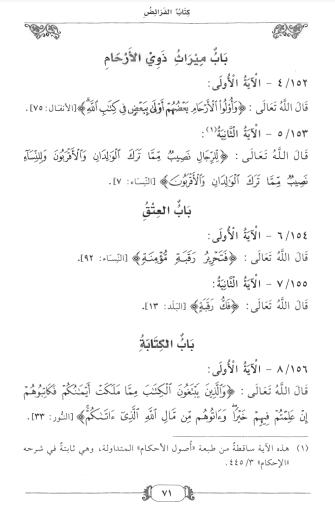 كِتَابُ الفَرَائِضِ
بَابُ مِيْرَاثِ ذَوِي الأَرْحَامِ
٤/١٥٢ - الْآيَةُ الْأُولَى:
قَالَ اللَّهُ تَعَالَى: ﴿وَأُوْلُوا الْأَرْحَامِ بَعْضُهُمْ أَوْلَى بِبَعْضٍ فِي كِتَابِ اللَّهِ﴾ [الأنفال: ٧٥].
٥/١٥٣ - الْآيَةُ الثَّانِيَةُ(١):
قَالَ اللَّهُ تَعَالَى: ﴿لِّلرِّجَالِ نَصِيبٌ مِّمَّا تَرَكَ الْوَالِدَانِ وَالْأَقْرَبُونَ وَلِلنِّسَاءِ
نَصِيبٌ مِّمَّا تَرَكَ الْوَالِدَانِ وَالْأَقْرَبُونَ﴾ [النِّسَاء: ٧].
بَابُ العِتْقِ
٦/١٥٤ - الْآيَةُ الْأُولَى:
قَالَ اللَّهُ تَعَالَى: ﴿فَتَحْرِيرُ رَقَبَةٍ مُّؤْمِنَةٍ﴾ [النِّسَاء: ٩٢].
٧/١٥٥ - الْآيَةُ الثَّانِيَةُ:
قَالَ اللَّهُ تَعَالَى: ﴿فَكُّ رَقَبَةٍ﴾ [البَلَد: ١٣].
بَابُ الكِتَابَةِ
٨/١٥٦ - الْآيَةُ الْأُولَى:
قَالَ اللَّهُ تَعَالَى: ﴿وَالَّذِينَ يَبْتَغُونَ الْكِتَابَ مِمَّا مَلَكَتْ أَيْمَانُكُمْ فَكَاتِبُوهُمْ
إِنْ عَلِمْتُمْ فِيهِمْ خَيْرًا وَءَاتُوهُم مِّن مَّالِ اللَّهِ الَّذِي ءَاتَاكُمْ﴾ [النُّور: ٣٣].
(١) هذه الآية ساقطةٌ من طبعة «أصول الأحكام» المتداولة، وهي ثابتةٌ في شرحه
«الإحكام» ٤٤٥/٣.
٧١